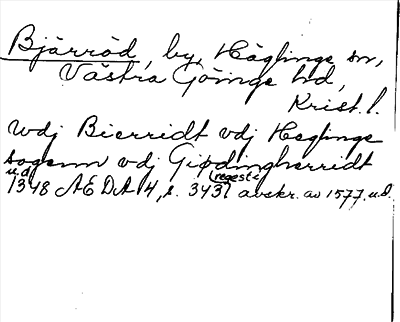 Bjärröd, by, Häglinge sn,
Västra Göinge hd,
Krist. l.
wdj Bierridt vdj Heglinge
sogenn vdj Giødingherridt
u.d. (regest
1348 AEDA 4, s. 343 avskr. av 1577. u.d.